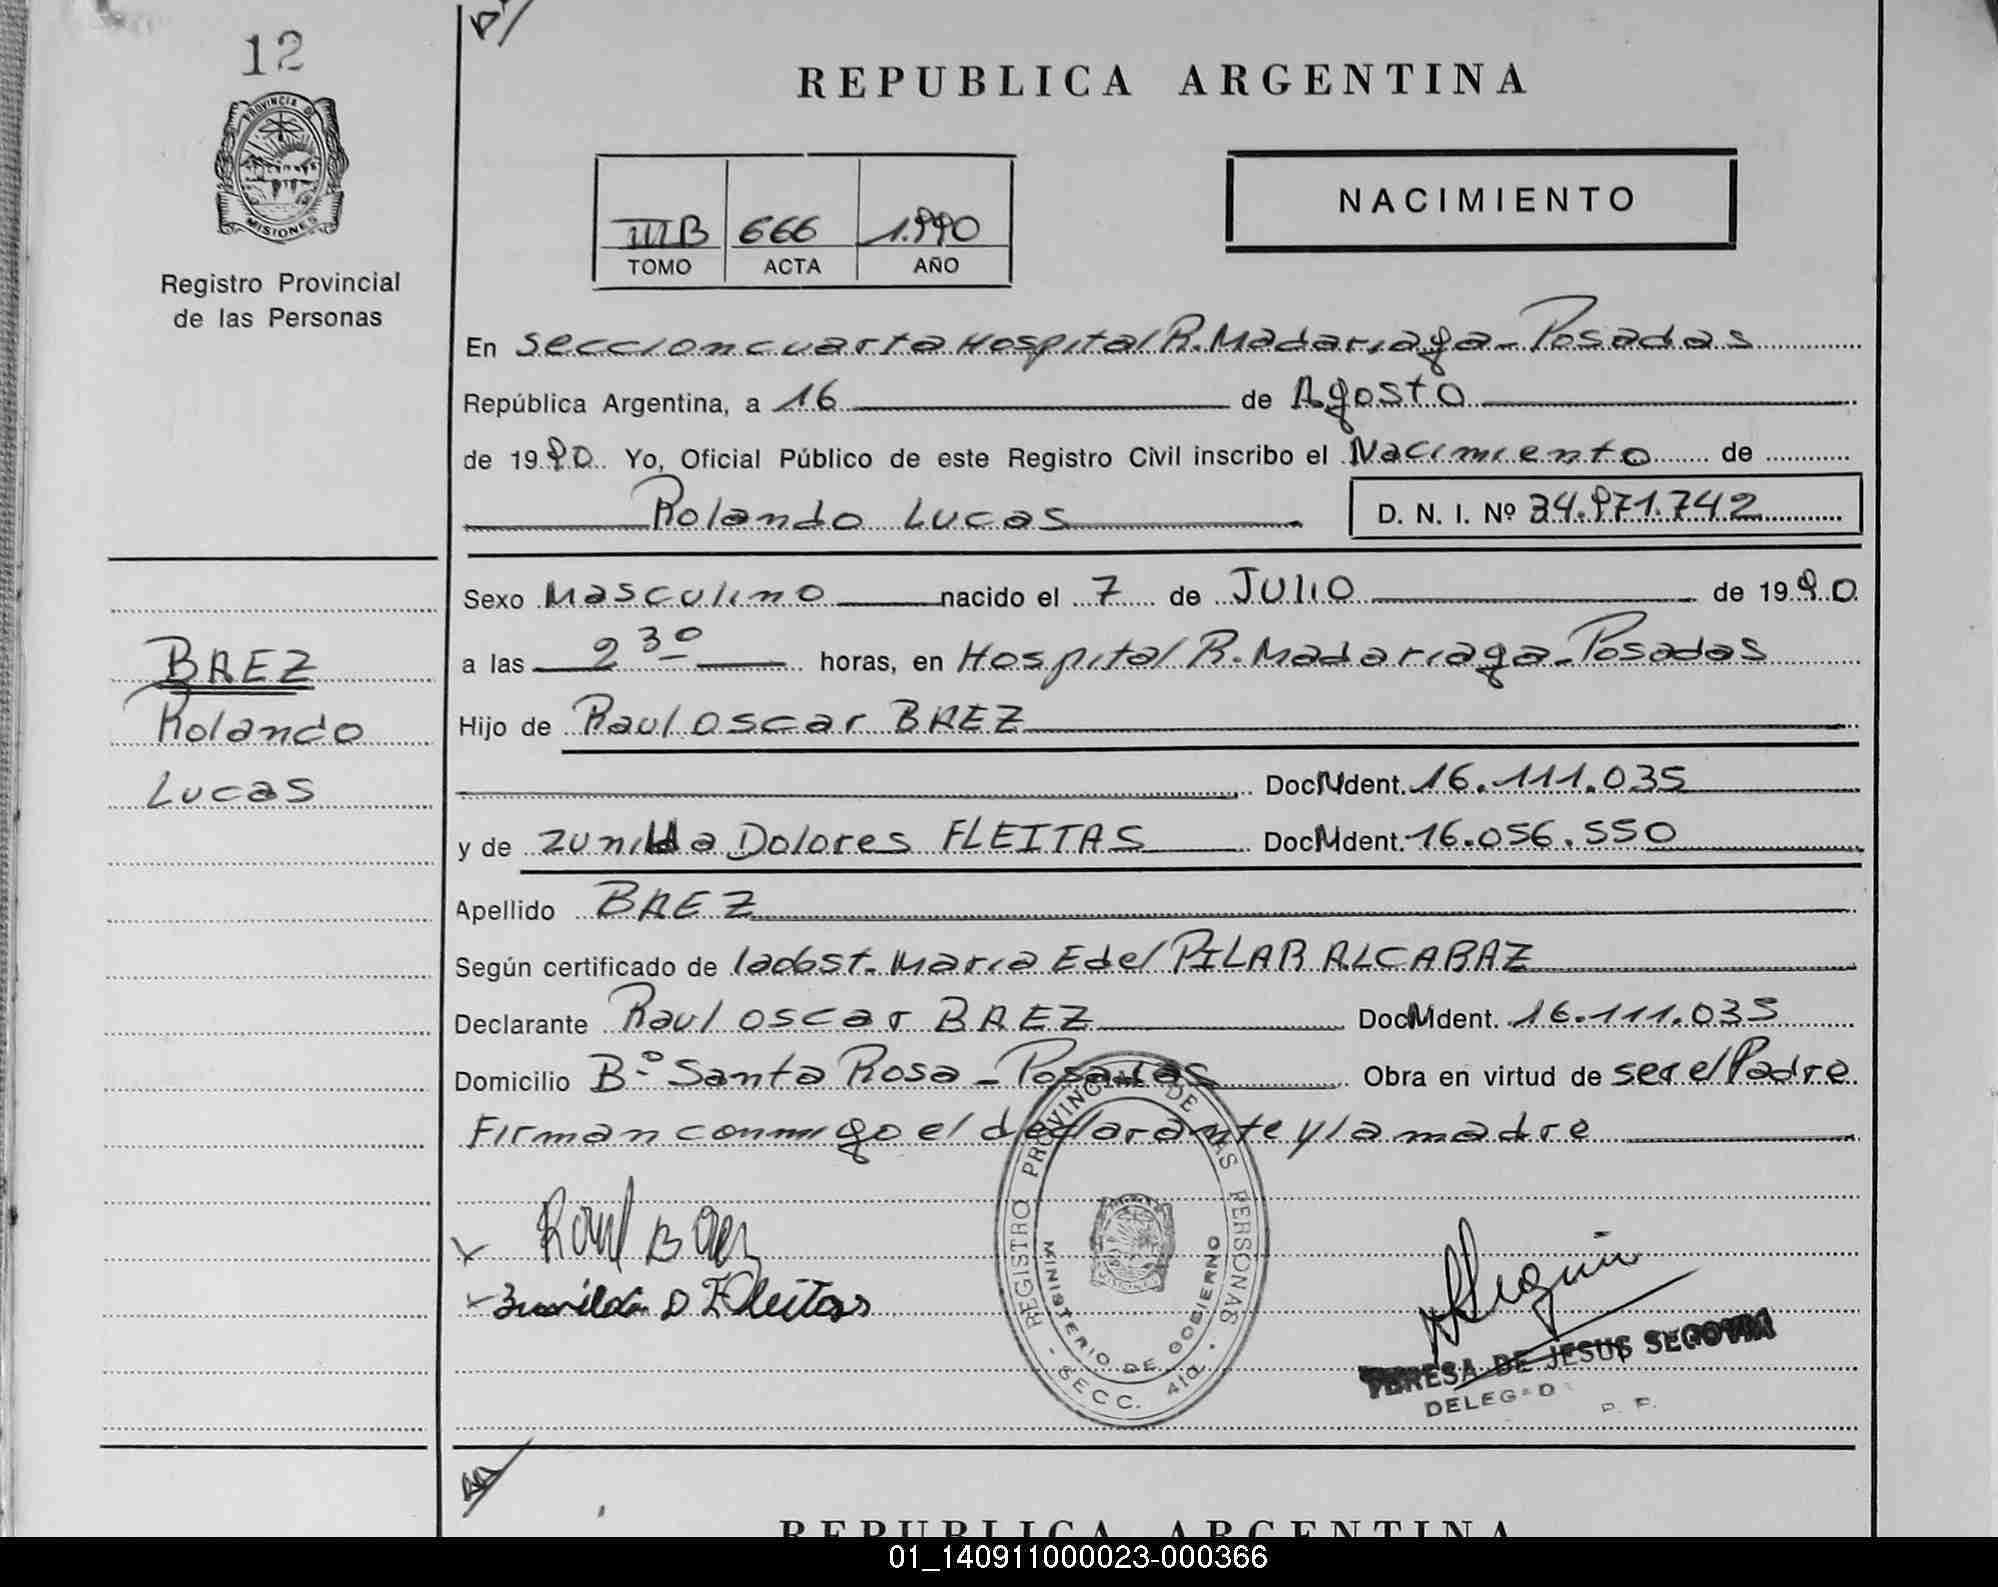 12
PROVINCIA D
MISIONES
Registro Provincial
de las Personas
REPUBLICA ARGENTINA
NACIMIENTO
IIIB 666 1.990
TOMO ACTA AÑO
En Seccion cuarta Hospital R. Madariaga - Posadas
República Argentina, a 16 de Agosto
de 1990. Yo, Oficial Público de este Registro Civil inscribo el Nacimiento de
Rolando Lucas D. N. I. Nº 34.971.742
Sexo Masculino nacido el 7 de JULIO de 1990
a las 2 30 horas, en Hospital R. Madariaga - Posadas
BAEZ
Rolando
Lucas
Hijo de Raul Oscar BAEZ
Doc. Ident. 16.111.035
y de Zunilda Dolores FLEITAS Doc. Ident. 16.056.550
Apellido BAEZ
Según certificado de la obst. Maria E del PILAR ALCARAZ
Declarante Raul Oscar BAEZ Doc. Ident. 16.111.035
Domicilio Bº Santa Rosa - Posadas Obra en virtud de ser el Padre
Firman conmigo el declarante y la madre
Raul Baez
Zunilda D Fleitas
REGISTRO PROVINCIAL DE LAS PERSONAS - SECC. 4ta. -
MINISTERIO DE GOBIERNO
TERESA DE JESUS SEGOVIA
REPUBLICA ARGENTINA
01_140911000023-000366